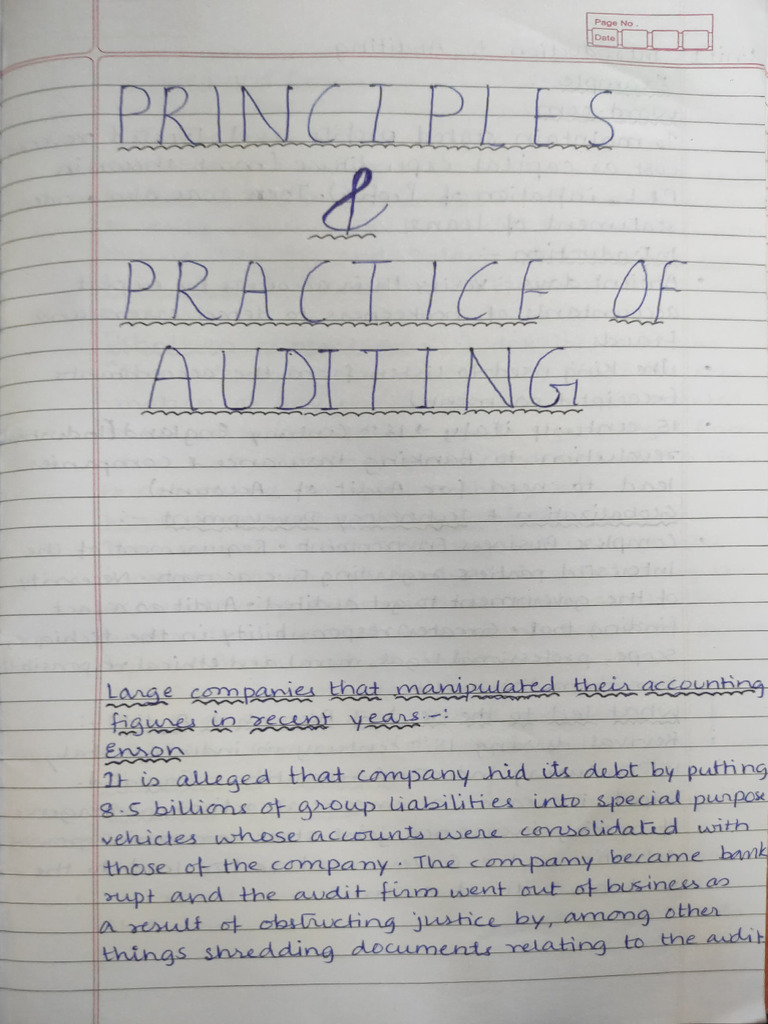 Page No.
Date
PRINCIPLES
&
PRACTICE OF
AUDITING
Large companies that manipulated their accounting
figures in recent years:-:
Enron
It is alleged that company hid its debt by putting
8.5 billions of group liabilities into special purpose
vehicles whose accounts were consolidated with
those of the company. The company became bank
rupt and the audit firm went out of business as
a result of obstructing justice by, among other
things shredding documents relating to the audit